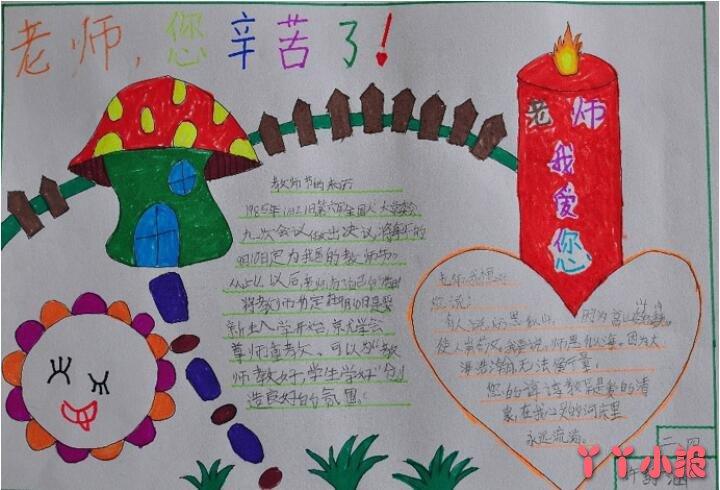 老师,您辛苦了!
老师
我
爱
您
教师节的来历
1985年1月21日第六届全国人大常委会
九次会议做出决议,将每年的
9月10日定为我国的教师节。
以后,
将教师节定在9月10日是
新生入学开始,
尊师重教 可以为"教
师教好,学生学好"创
造良好的氛围。
老师,我想
您说:
有人说师恩似山,因为高山
使人崇 我要说,师恩似海。因为大
海浩 无法 量。
您的谆谆教 是爱的清
泉,在我 的河床里
永远流淌。
二、四
丫丫小报